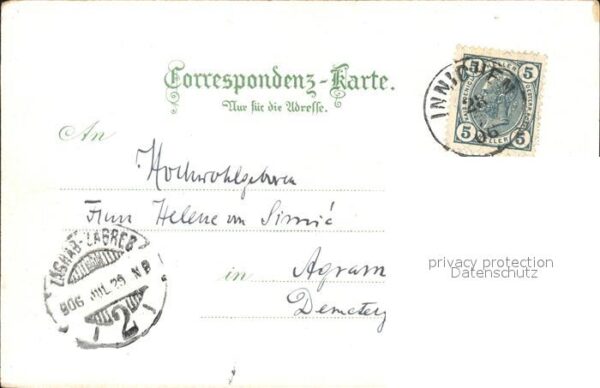 Correspondenz-Karte.
Nur für die Adresse.
5 5
5 HELLER 5
INNICHEN
An
Hochwohlgeboren
Frau Helene von Simić
in Agram
ZÁGRÁB-ZAGREB
906 JUL 29 N 8
2
privacy protection
Datenschutz